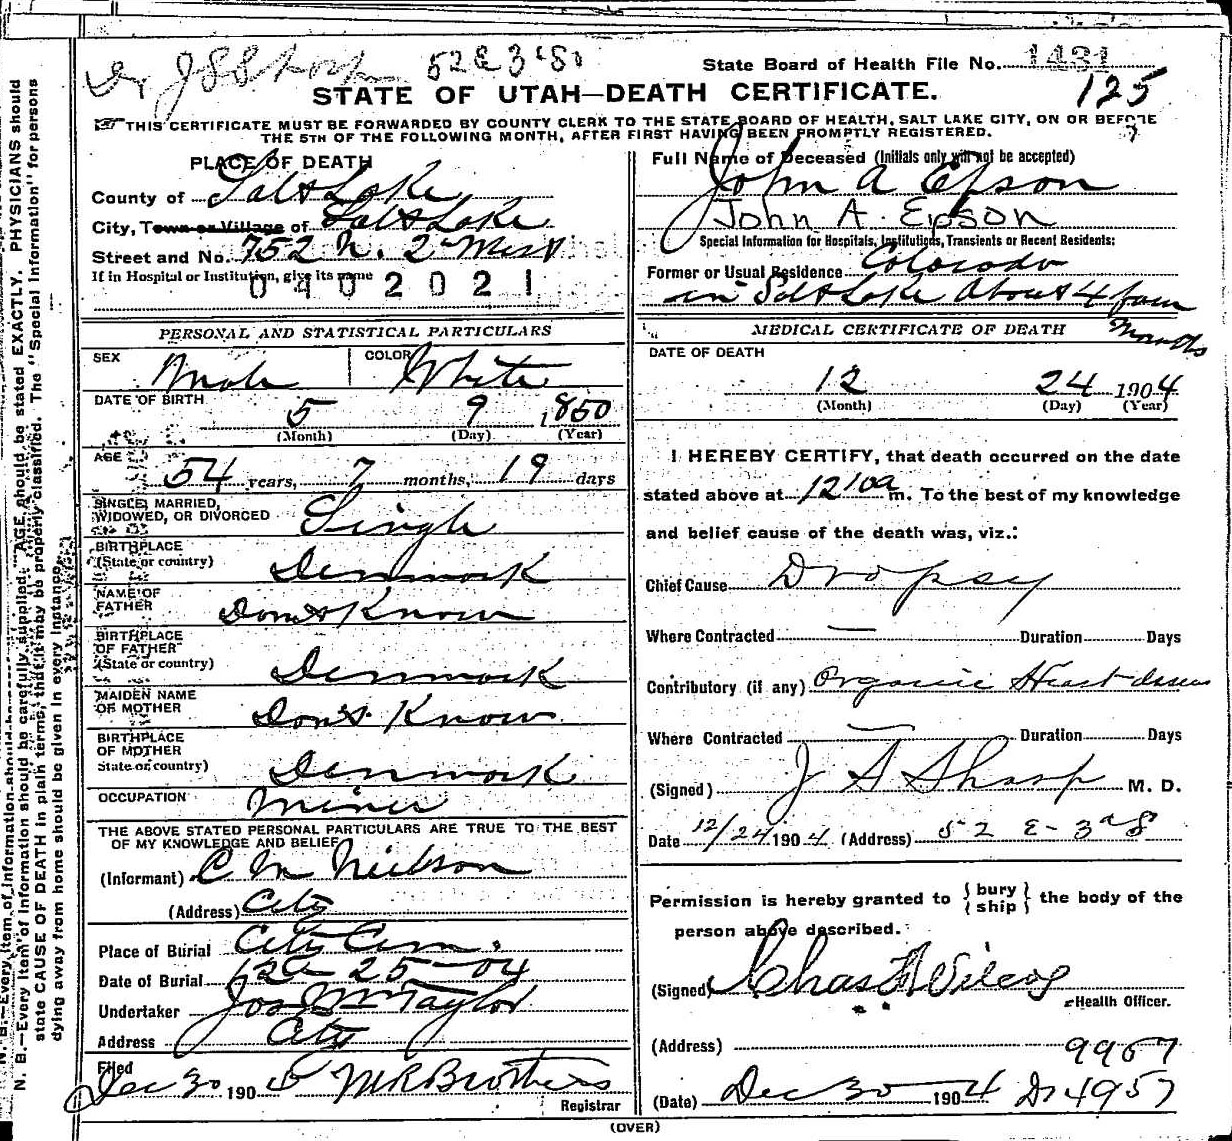 Dr J S Sharp 52 E 3rd So
State Board of Health File No. 1431
125
STATE OF UTAH—DEATH CERTIFICATE.
THIS CERTIFICATE MUST BE FORWARDED BY COUNTY CLERK TO THE STATE BOARD OF HEALTH, SALT LAKE CITY, ON OR BEFORE
THE 5TH OF THE FOLLOWING MONTH, AFTER FIRST HAVING BEEN PROMPTLY REGISTERED.
PLACE OF DEATH
County of Salt Lake
City, Town or Village of Salt Lake
Street and No. 752 N. 2nd West
If in Hospital or Institution, give its name
0402021
Full Name of Deceased (Initials only will not be accepted)
John A Epson
John A. Epson
Special Information for Hospitals, Institutions, Transients or Recent Residents:
Former or Usual Residence Colorado
in Salt Lake About 4 four
Months
PERSONAL AND STATISTICAL PARTICULARS
SEX Male COLOR White
DATE OF BIRTH
5 9 1850
(Month) (Day) (Year)
AGE
54 years, 7 months, 19 days
SINGLE, MARRIED,
WIDOWED, OR DIVORCED Single
BIRTHPLACE
(State or country) Denmark
NAME OF
FATHER Don't Know
BIRTHPLACE
OF FATHER
(State or country) Denmark
MAIDEN NAME
OF MOTHER Don't Know
BIRTHPLACE
OF MOTHER
State or country) Denmark
OCCUPATION Miner
THE ABOVE STATED PERSONAL PARTICULARS ARE TRUE TO THE BEST
OF MY KNOWLEDGE AND BELIEF
(Informant) C M Neilson
(Address) City
Place of Burial City Cem.
Date of Burial 12-25-04
Undertaker Jos Wm Taylor
Address City
Filed
Dec 30 1904 M R Brothers
Registrar
MEDICAL CERTIFICATE OF DEATH
DATE OF DEATH
12 24 1904
(Month) (Day) (Year)
I HEREBY CERTIFY, that death occurred on the date
stated above at 12'10 a m. To the best of my knowledge
and belief cause of the death was, viz.:
Chief Cause Dropsy
Where Contracted — Duration Days
Contributory (if any) Organic Heart
Where Contracted — Duration Days
(Signed) J S Sharp M. D.
Date 12/24 1904 (Address) 52 E- 3rd S
Permission is hereby granted to { bury ship } the body of the
person above described.
(Signed) Chas F Wilcox
Health Officer.
(Address)
9957
(Date) Dec 30 1904 Dr 4957
(OVER)
N. B.—Every item of information should be carefully supplied. AGE should be stated EXACTLY. PHYSICIANS should
state CAUSE OF DEATH in plain terms, that it may be properly classified. The "Special Information" for persons
dying away from home should be given in every instance.